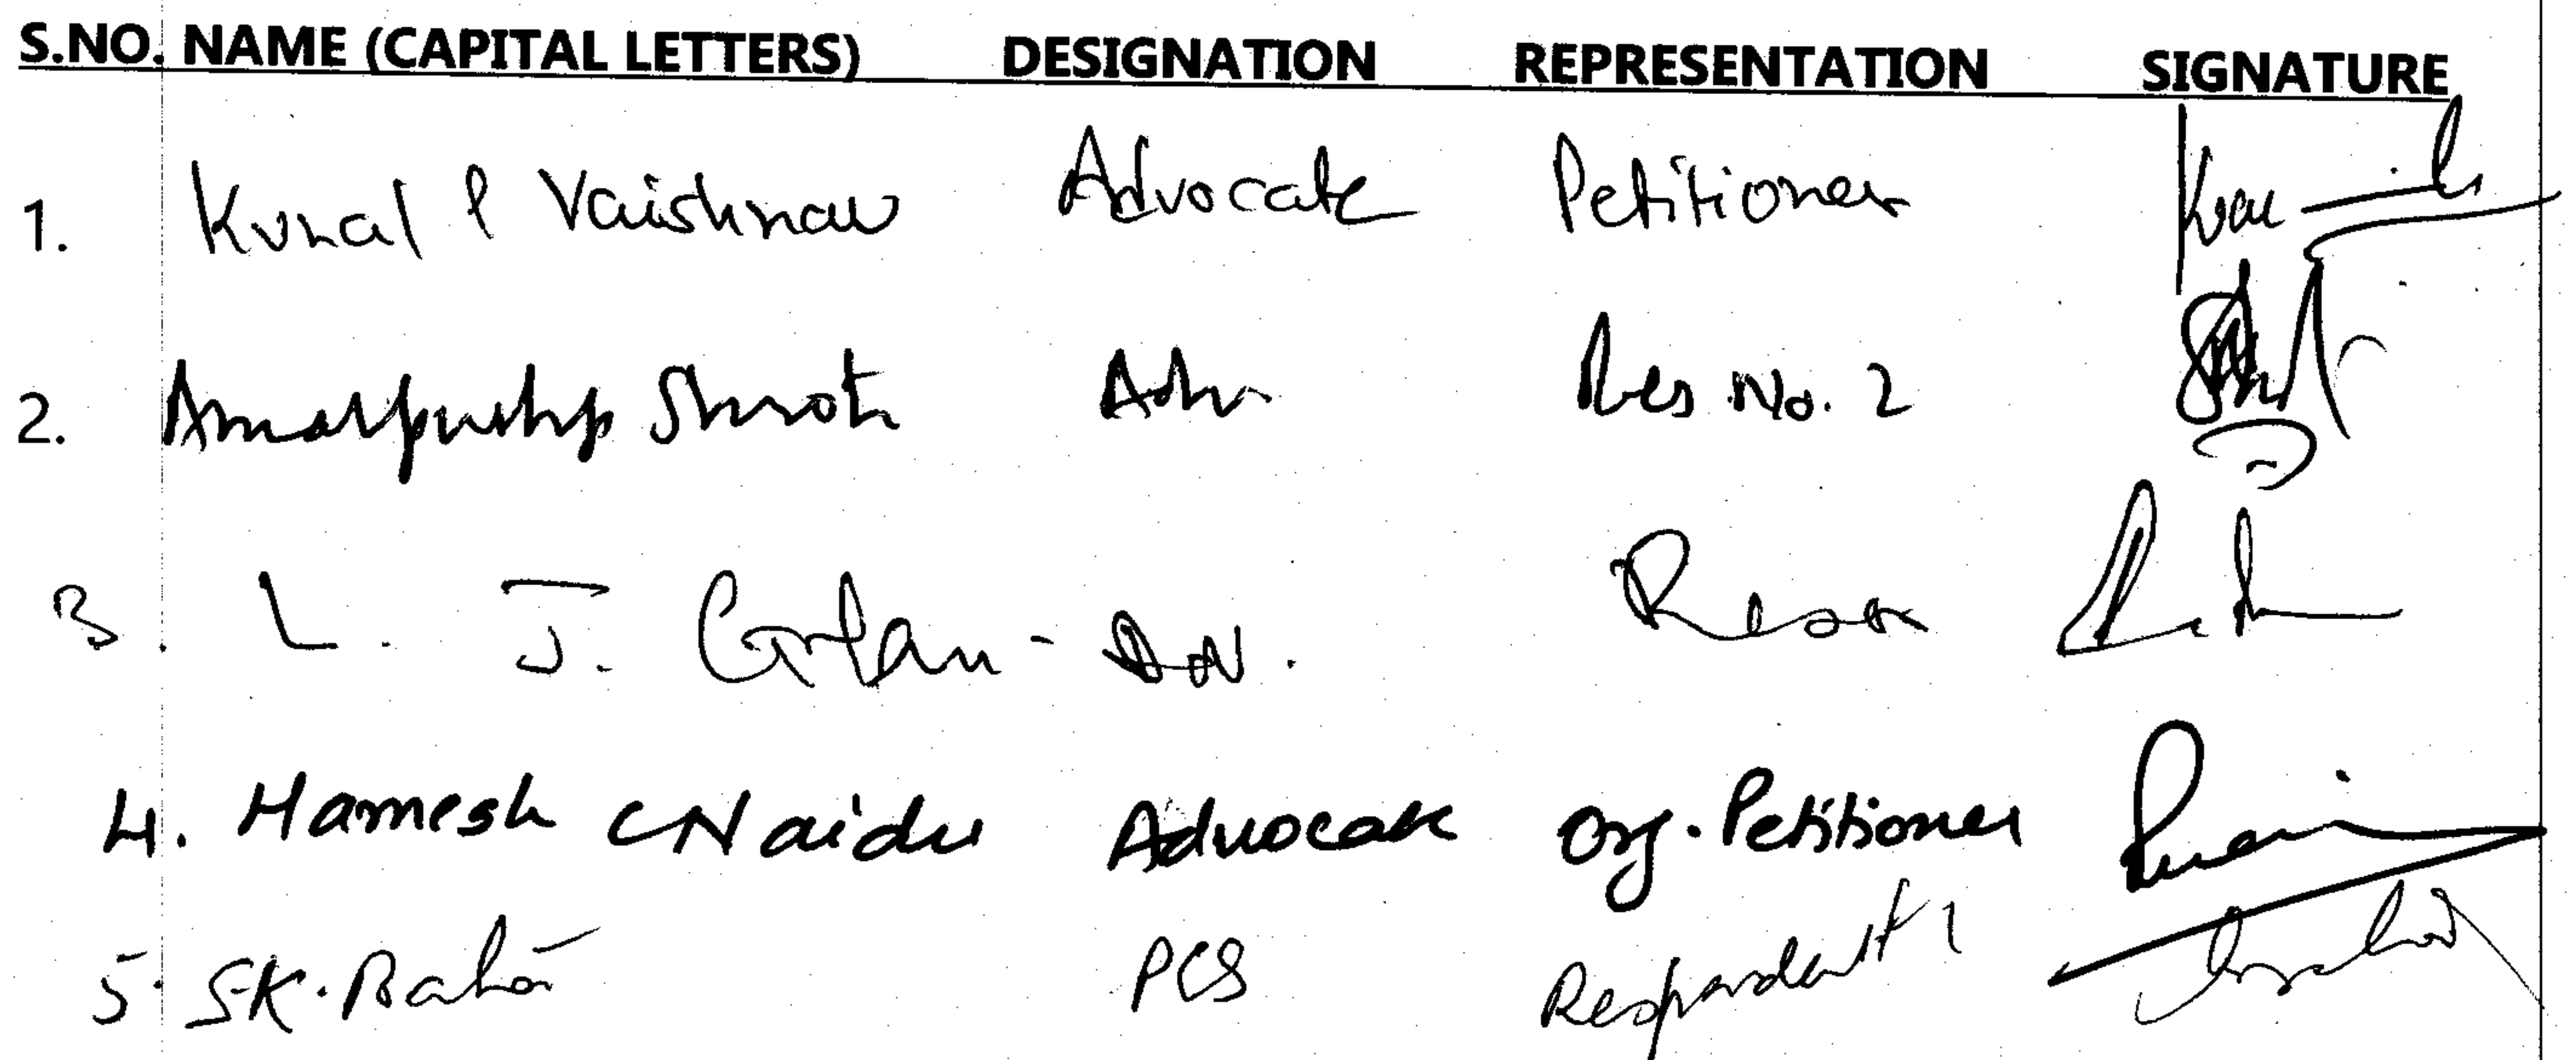 S.NO. NAME (CAPITAL LETTERS) DESIGNATION REPRESENTATION SIGNATURE
1. Kunal P Vaishnav Advocate Petitioner
2. Amarpushp Shroti Adv Res No. 2
3. L. J. Adv.
4. Hamesh C Naidu Advocate Org. Petitioner
5. SK. PCS Respondent 1